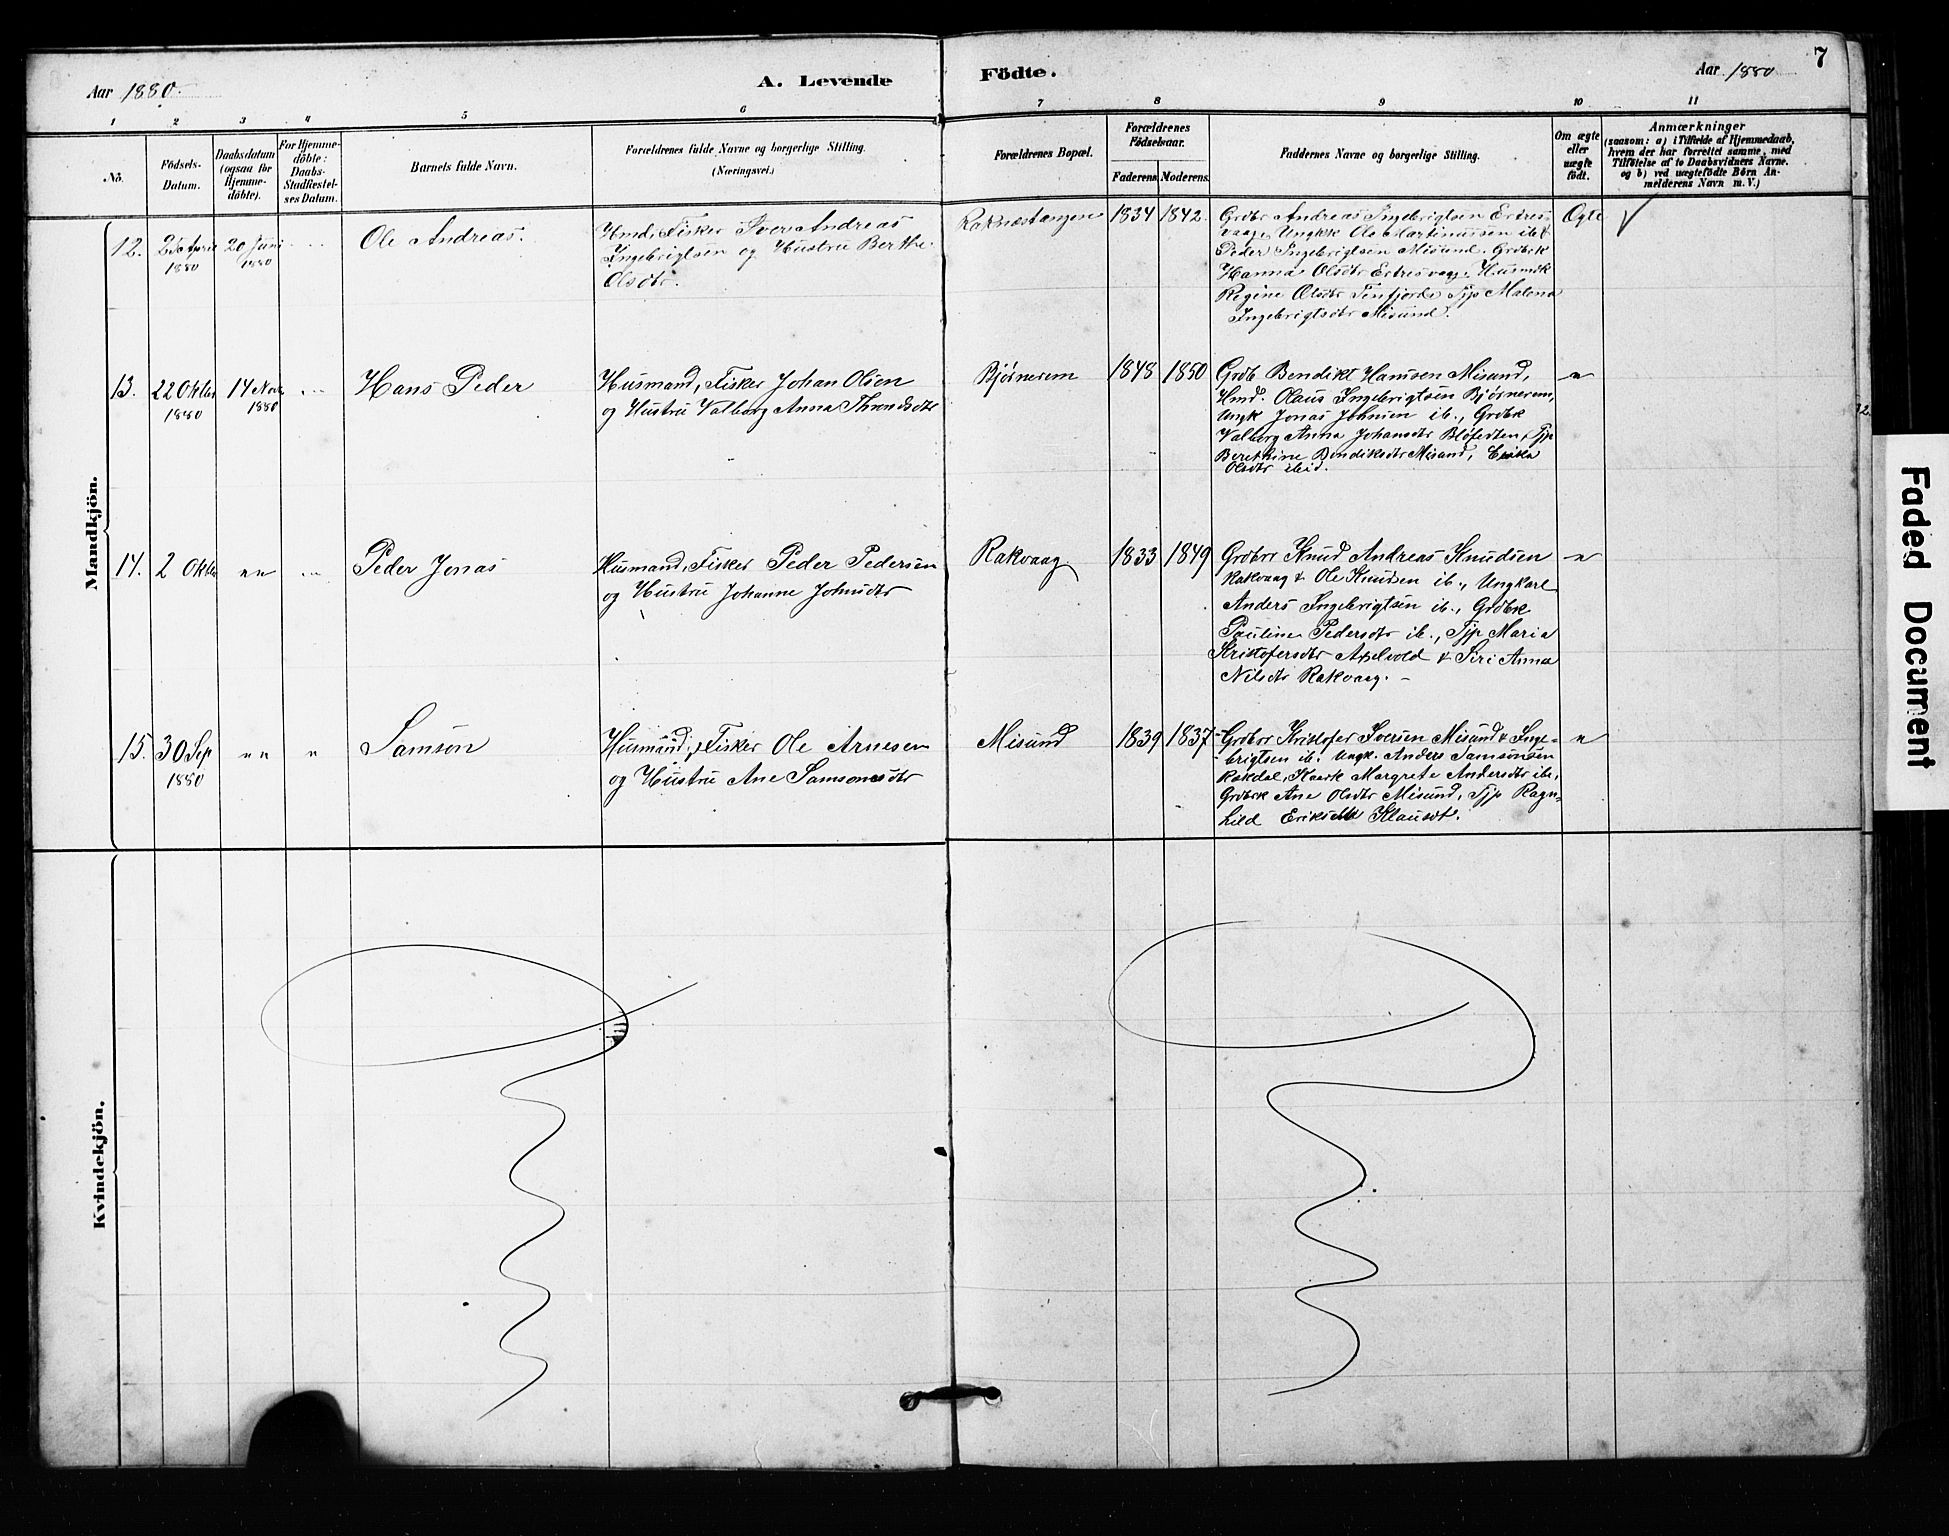 7
Aar 1880.
A. Levende
Födte.
Aar 1880
1 2 3 4 5 6 7 8 9 10 11
No.
Födsels-
Datum.
Daabsdatum
(ogsaa for
Hjemme-
döbte).
For Hjemme-
döbte:
Daabs-
Stadfæstel-
ses Datum.
Barnets fulde Navn.
Forældrenes fulde Navne og borgerlige Stilling.
(Næringsvei.)
Forældrenes Bopæl.
Forældrenes
Födselsaar.
Faderens. Moderens.
Faddernes Navne og borgerlige Stilling.
Om ægte
eller
uægte
födt.
Anmærkninger
(saasom: a) i Tilfælde af Hjemmedaab,
hvem der har forrettet samme, med
Tilföielse af to Daabsvidners Navne.
og b) ved uægtefödte Börn An-
melderens Navn m. V.)
Mandkjön.
12.
25 April
1880
20 Juni
1880
Ole Andreas.
Hmd, Fisker Iver Andreas
Ingebrigtsen og Hustru Berthe
Olsdtr.
Raknestangen
1834
1842.
Grdbr Andreas Ingebrigtsen Ertres-
vaag, Ungkk Ole Martinussen ib &
Peder Ingebrigtsen Misund. Grdbrk
Hanna Olsdtr Ertresvaag. Husmk
Regine Olsdtr Tenfjorde Pjp Malena
Ingebrigtsdtr Misund.
Ægte
13.
22 Oktbr
1880
14 Novb
1880
Hans Peder
Husmand, Fisker Johan Olsen
og Hustru Valborg Anna Throndsdtr
Bjørnerem
1848
1850
Grdb Bendikt Hansen Misund,
Hmd. Olaus Ingebrigtsen Bjørnerem,
Ungk Jonas Johnsen ib., Grdbrk
Valborg Anna Johansdtr Pjp
Berethine Bendiksdtr Misund,
Olsdtr ibid.
"
14.
2 Oktbr
" "
Peder Jonas
Husmand, Fisker Peder Pedersen
og Hustru Johanne Johnsdtr
Rakvaag
1833
1849
Grdbr Knud Andreas Knudsen
Rakvaag & Ole Knudsen ib., Ungkarl
Anders Ingebrigtsen ib., Grdbrk
Pauline Pedersdtr ib., Pjp Maria
Kristofersdtr & Siri Anna
Nilsdtr Rakvaag. -
"
15.
30 Sep
1880
" "
"
Samson
Husmand, Fisker Ole Arnesen
og Hustru Ane Samsonsdtr
Misund
1839
1837
Grdbr Kristofer Iversen Misund & Inge-
brigtsen ib. Ungk. Anders Samsonsen
Rakdal, Kaark Margrete Andersdtr ib.,
Grdbrk Ane Olsdtr Misund, Pjp Ragn-
hild Eriksdtr Klauset.
"
Kvindekjön.
Faded Document